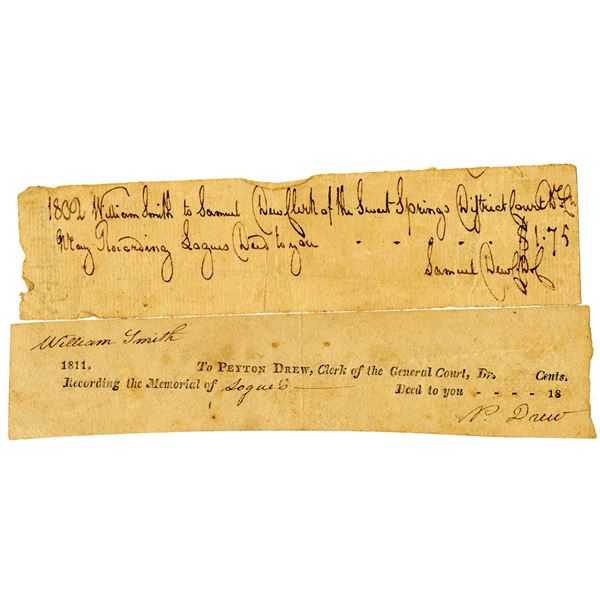 1802 William Smith to Samuel Dew Clerk of the Sweet Springs District Court Dr
May Recording Logues Deed to you - - - - $1.75
Samuel Dew
William Smith
1811. To PEYTON DREW, Clerk of the General Court, Dr. Cents.
Recording the Memorial of Logue's Deed to you - - - - 18
P. Drew